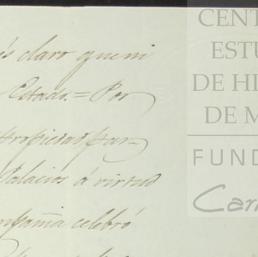 es claro que ni
Estado. = Por
propiedad par-
Palacios á virtud
compañia celebró
CENT
ESTU
DE HI
DE M
FUND
Car